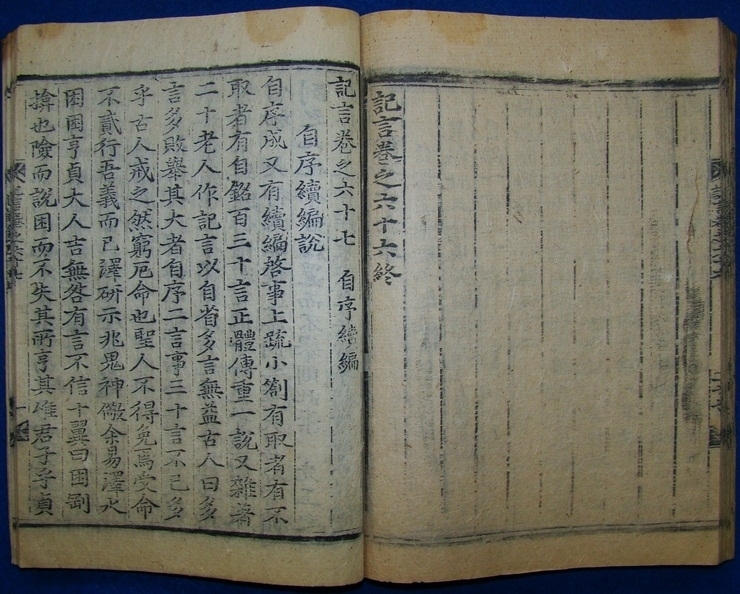 記言卷之六十六終
記言卷之六十七 自序續編
自序續編說
自序成又有續編啓事上疏小劄有取者有不
取者有自銘百三十言正體傳重一說又雜著
二十老人作記言以自省多言無益古人曰多
言多敗舉其大者自序二言事三十言不已多
乎古人戒之然窮厄命也聖人不得免焉受命
不貳行吾義而已澤研示兆鬼神儆余易澤水
困困亨貞大人吉無咎有言不信十翼曰困剛
揜也險而說困而不失其所亨其惟君子乎貞